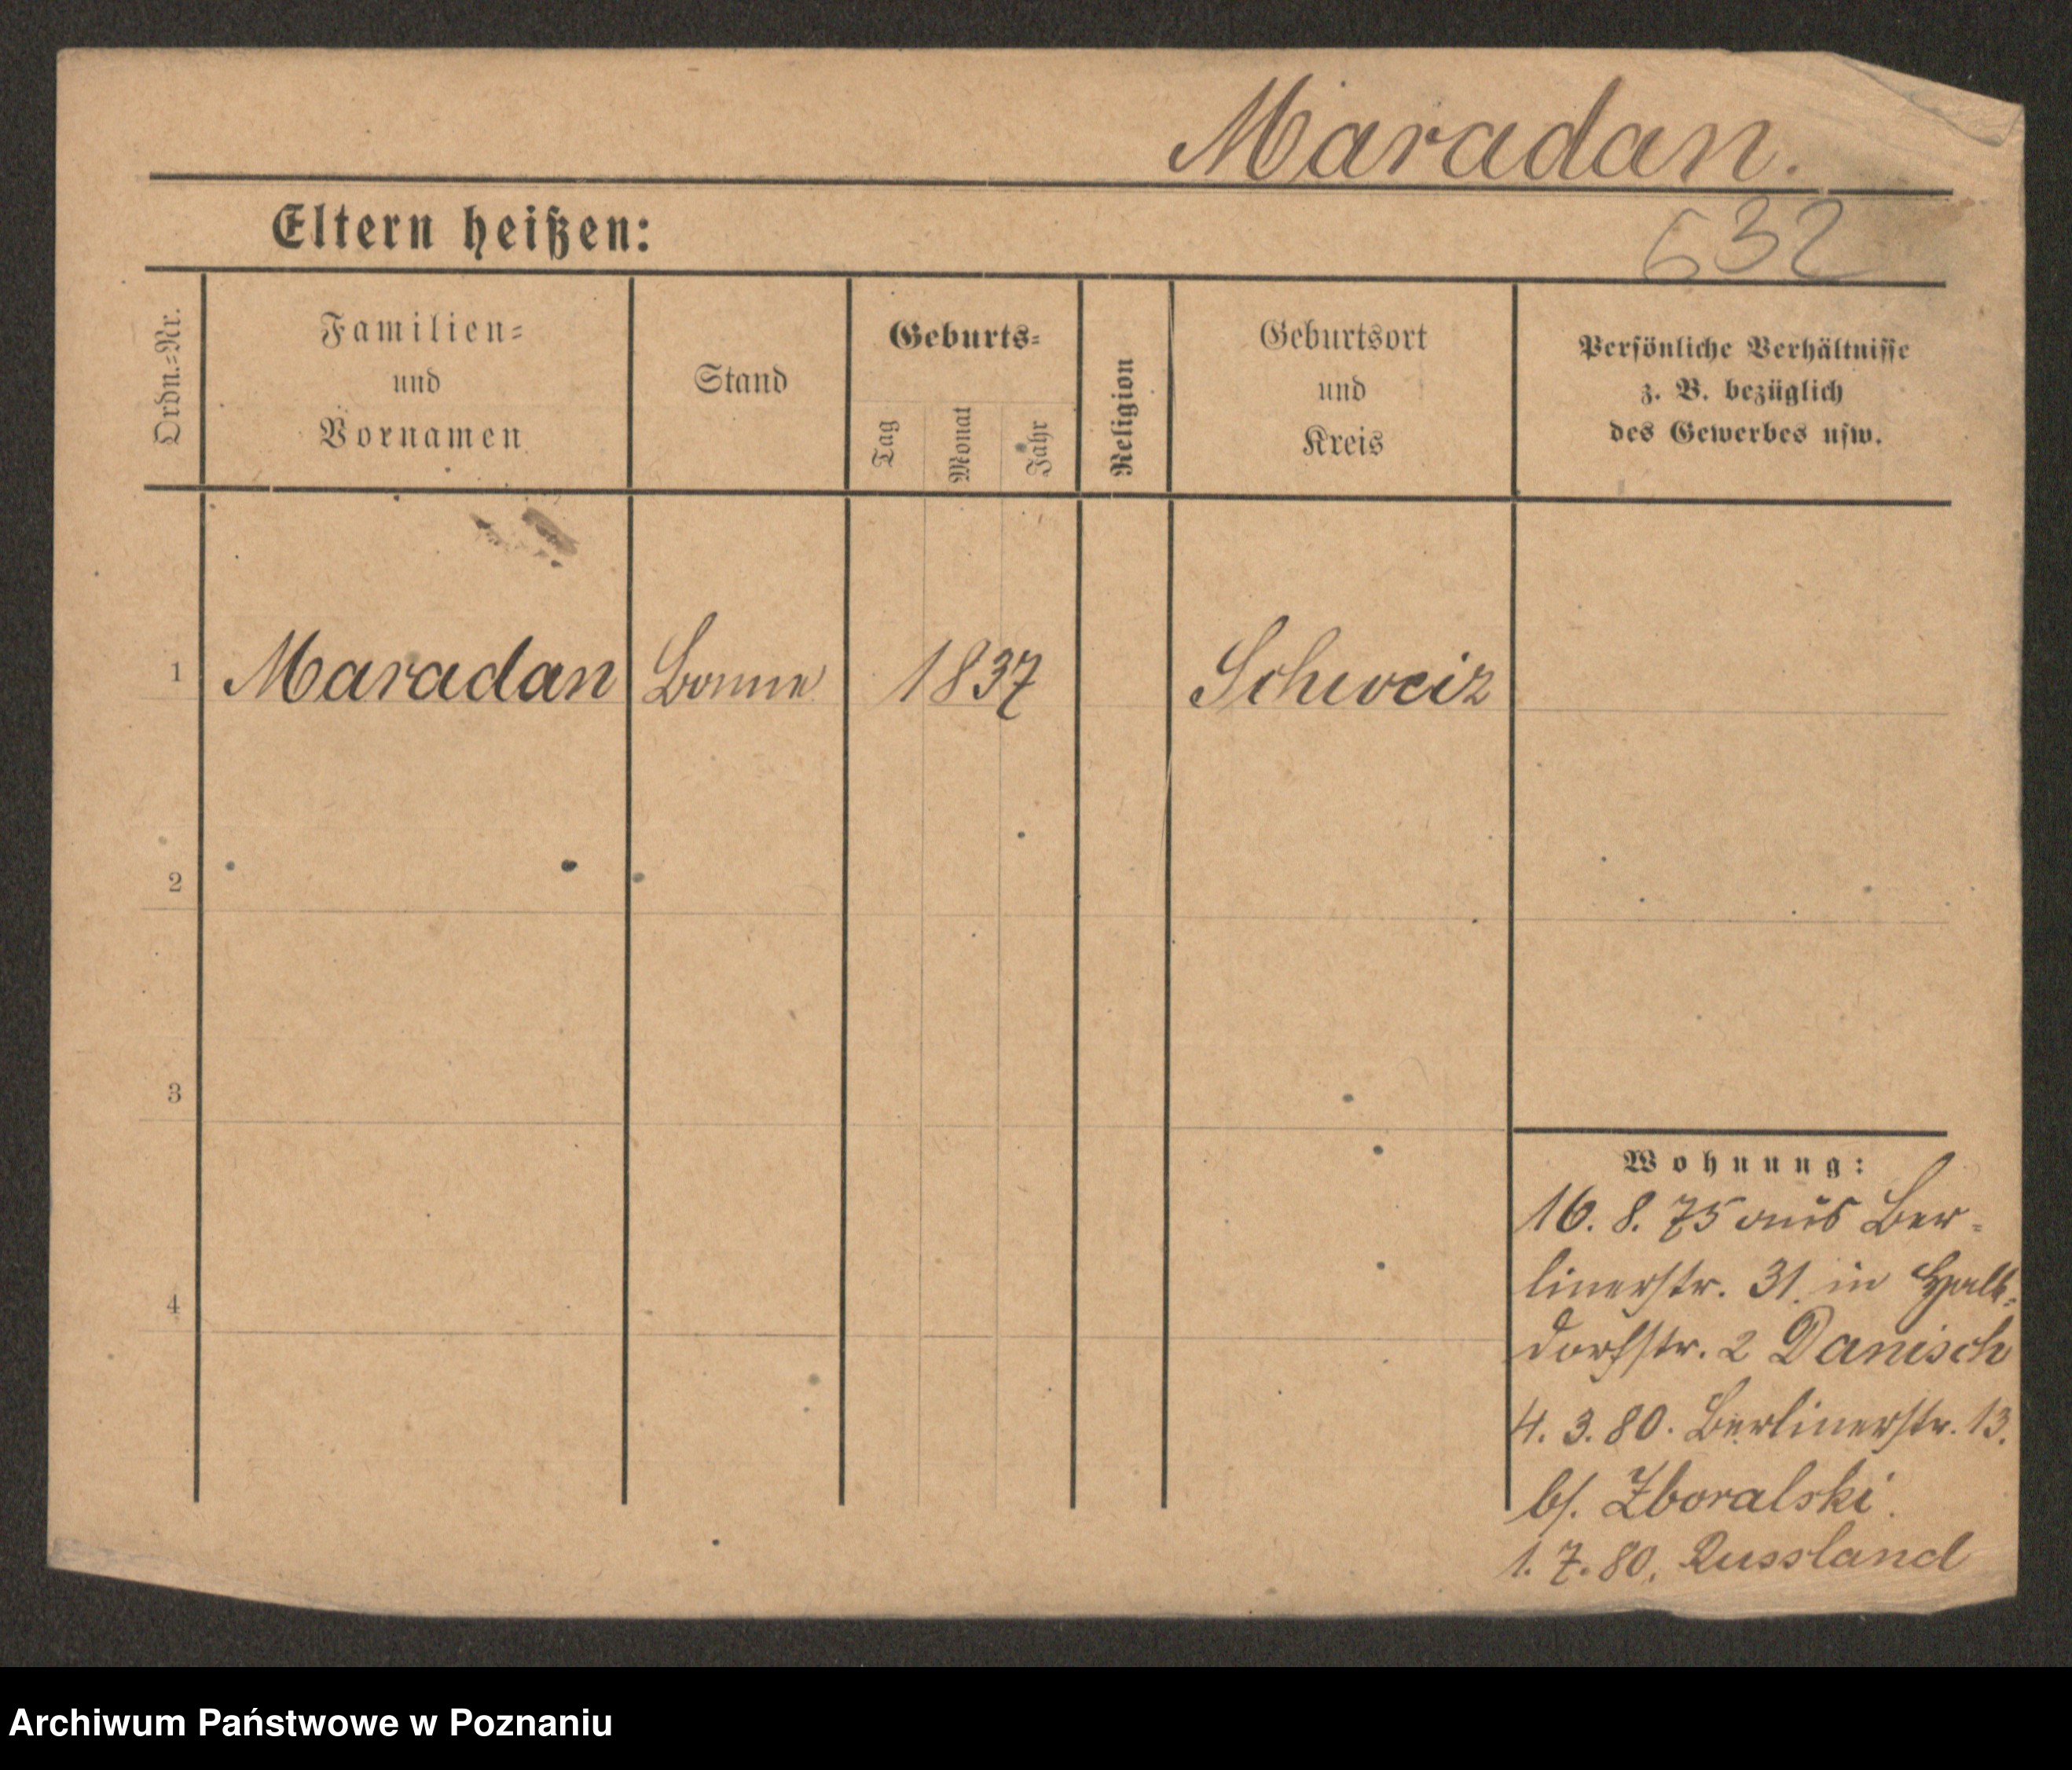 Maradan.
Eltern heißen:
632
Ordn.=Nr.
Familien=
und
Vornamen
Stand
Geburts=
Tag
Monat
Jahr
Religion
Geburtsort
und
Kreis
Persönliche Verhältnisse
z. B. bezüglich
des Gewerbes usw.
1 Maradan Bonne 1837 Schweiz
2
3
4
Wohnung:
16. 8. 75 aus Ber-
linerstr. 31. in Halb-
dorfstr. 2 Danisch
4. 3. 80. Berlinerstr. 13.
b/. Zboralski.
1. 7. 80. Russland
Archiwum Państwowe w Poznaniu